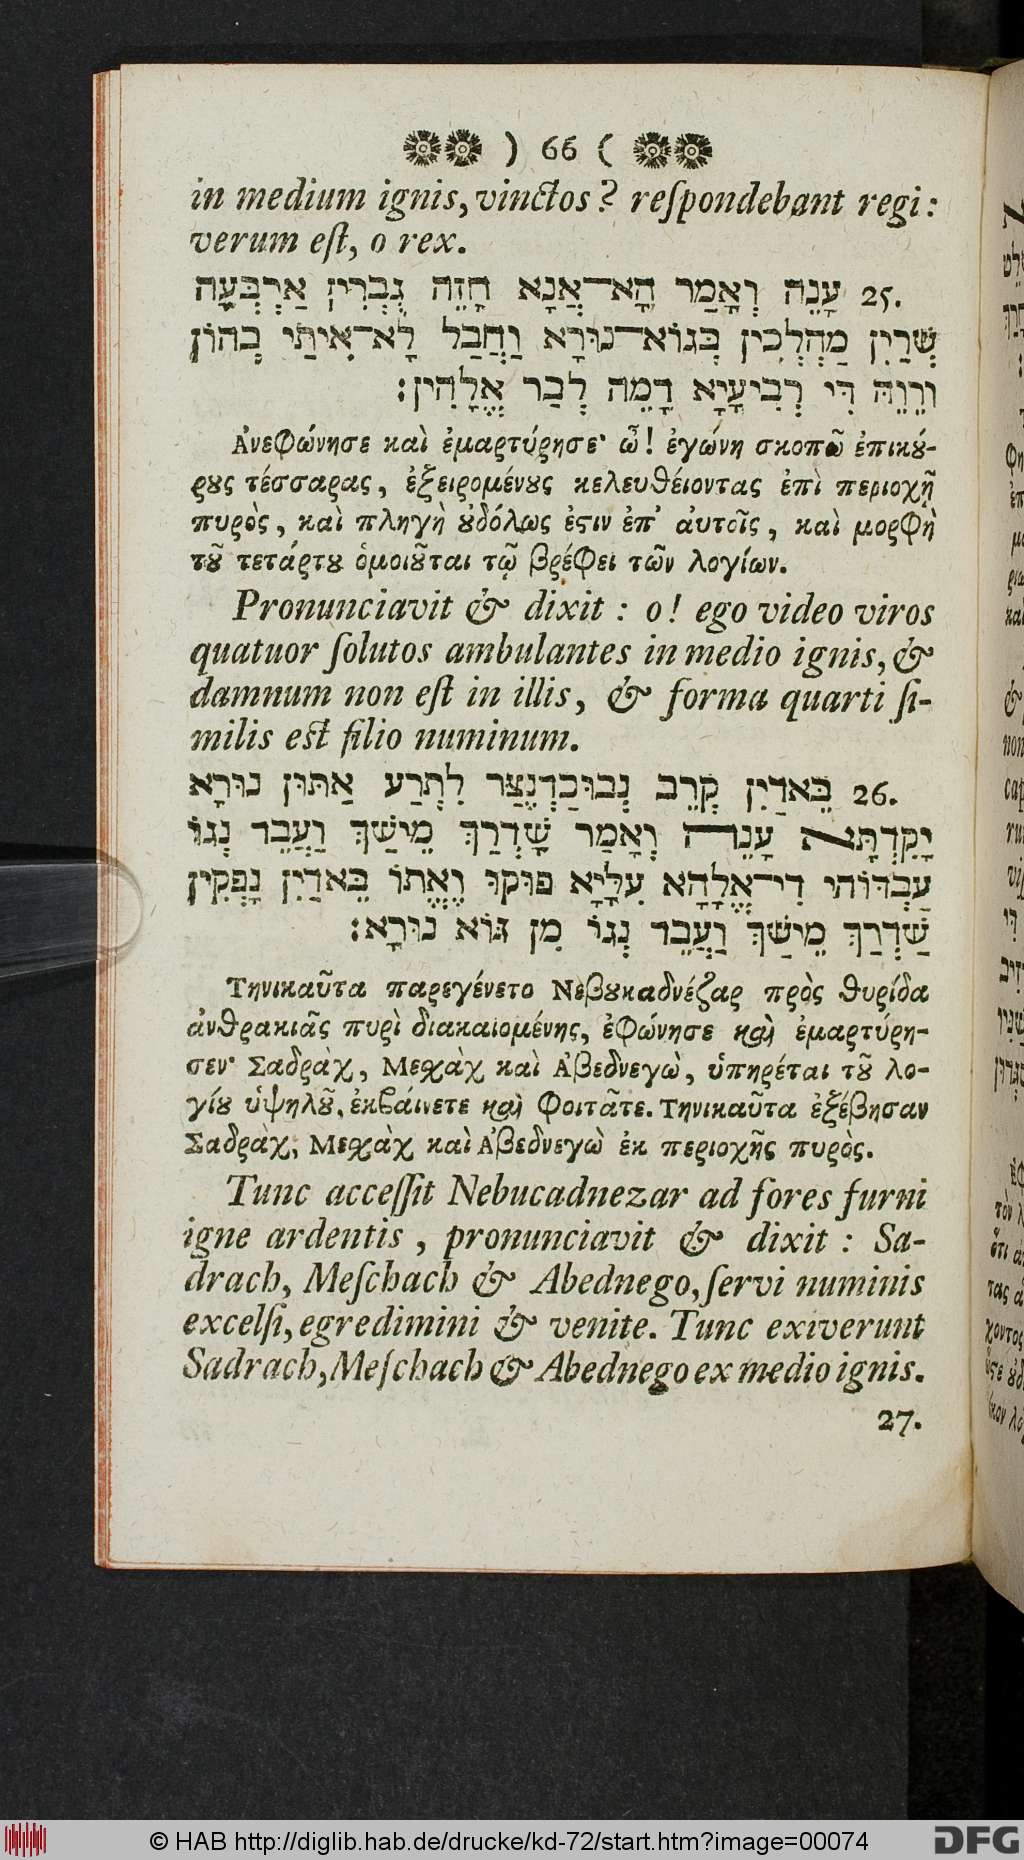 ) 66 (
in medium ignis, vinctos? reſpondebant regi:
verum eſt, o rex.
25. עָנֵה וְאָמַר הָא־אֲנָא חָזֵה גֻּבְרִין אַרְבְּעָה
שְׁרַיִן מַהְלְכִין בְּגוֹא־נוּרָא וַחֲבָל לָא־אִיתַי בְּהוֹן
וְרֵוֵהּ דִּי רְבִיעָיָא דָּמֵה לְבַר אֱלָהִין׃
Ἀνεφώνησε καὶ ἐμαρτύρησε· ὦ! ἐγώνη σκοπῶ ἐπικȣ́-
ρȣς τέσσαρας, ἐξειρομένȣς κελευθέιοντας ἐπὶ περιοχῇ
πυρὸς, καὶ πληγὴ ȣ̓δόλως ἐϛιν ἐπ' ἀυτοῖς, καὶ μορφὴ
τȣ͂ τετάρτȣ ὁμοιȣ͂ται τῷ βρέφει τῶν λογίων.
Pronunciavit & dixit: o! ego video viros
quatuor ſolutos ambulantes in medio ignis, &
damnum non eſt in illis, & forma quarti ſi-
milis est filio numinum.
26. בֵּאדַיִן קְרֵב נְבוּכַדְנֶצַּר לִתְרַע אַתּוּן נוּרָא
יָקִדְתָּא עָנֵה וְאָמַר שַׁדְרַךְ מֵישַׁךְ וַעֲבֵד נְגוֹ
עַבְדוֹהִי דִי־אֱלָהָא עִלָּיָא פּוּקוּ וֶאֱתוֹ בֵּאדַיִן נָפְקִין
שַׁדְרַךְ מֵישַׁךְ וַעֲבֵד נְגוֹ מִן גּוֹא נוּרָא׃
Τηνικαῦτα παρεγένετο Νεβȣκαδνέζαρ πρὸς θυρίδα
ἀνθρακιᾶς πυρὶ διακαιομένης, ἐφώνησε καὶ ἐμαρτύρη-
σεν· Σαδρὰχ, Μεσχὰχ καὶ Ἀβεδνεγὼ, ὑπηρέται τȣ͂ λο-
γίȣ ὑψηλȣ͂, ἐκβάινετε καὶ φοιτᾶτε. Τηνικαῦτα ἐξέβησαν
Σαδρὰχ, Μεσχὰχ καὶ Ἀβεδνεγὼ ἐκ περιοχῆς πυρὸς.
Tunc acceſſit Nebucadnezar ad fores furni
igne ardentis, pronunciavit & dixit: Sa-
drach, Meſchach & Abednego, ſervi numinis
excelſi, egredimini & venite. Tunc exiverunt
Sadrach, Meſchach & Abednego ex medio ignis.
27.
© HAB http://diglib.hab.de/drucke/kd-72/start.htm?image=00074
DFG